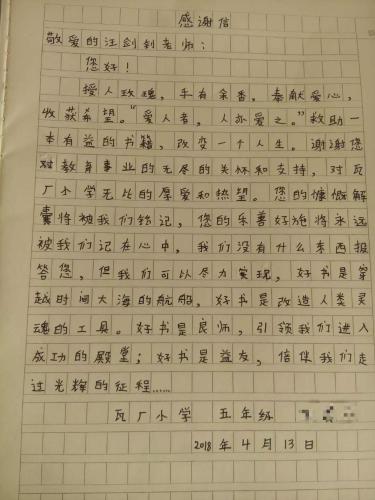 感谢信
敬爱的汪剑钊老师：
您好！
授人玫瑰，手有余香。奉献爱心，
收获希望。“爱人者，人亦爱之。”救助一
本有益的书籍，改变一个人生。谢谢您
对教育事业的无尽的关怀和支持，对瓦
厂小学无比的厚爱和热望。您的慷慨解
囊将被我们铭记，您的乐善好施将永远
被我们记在心中，我们没有什么东西报
答您，但我们可以尽力实现，好书是穿
越时间大海的航船，好书是改造人类灵
魂的工具。好书是良师，引领我们进入
成功的殿堂；好书是益友，陪伴我们走
过光辉的征程……
瓦厂小学 五年级
2018年4月13日